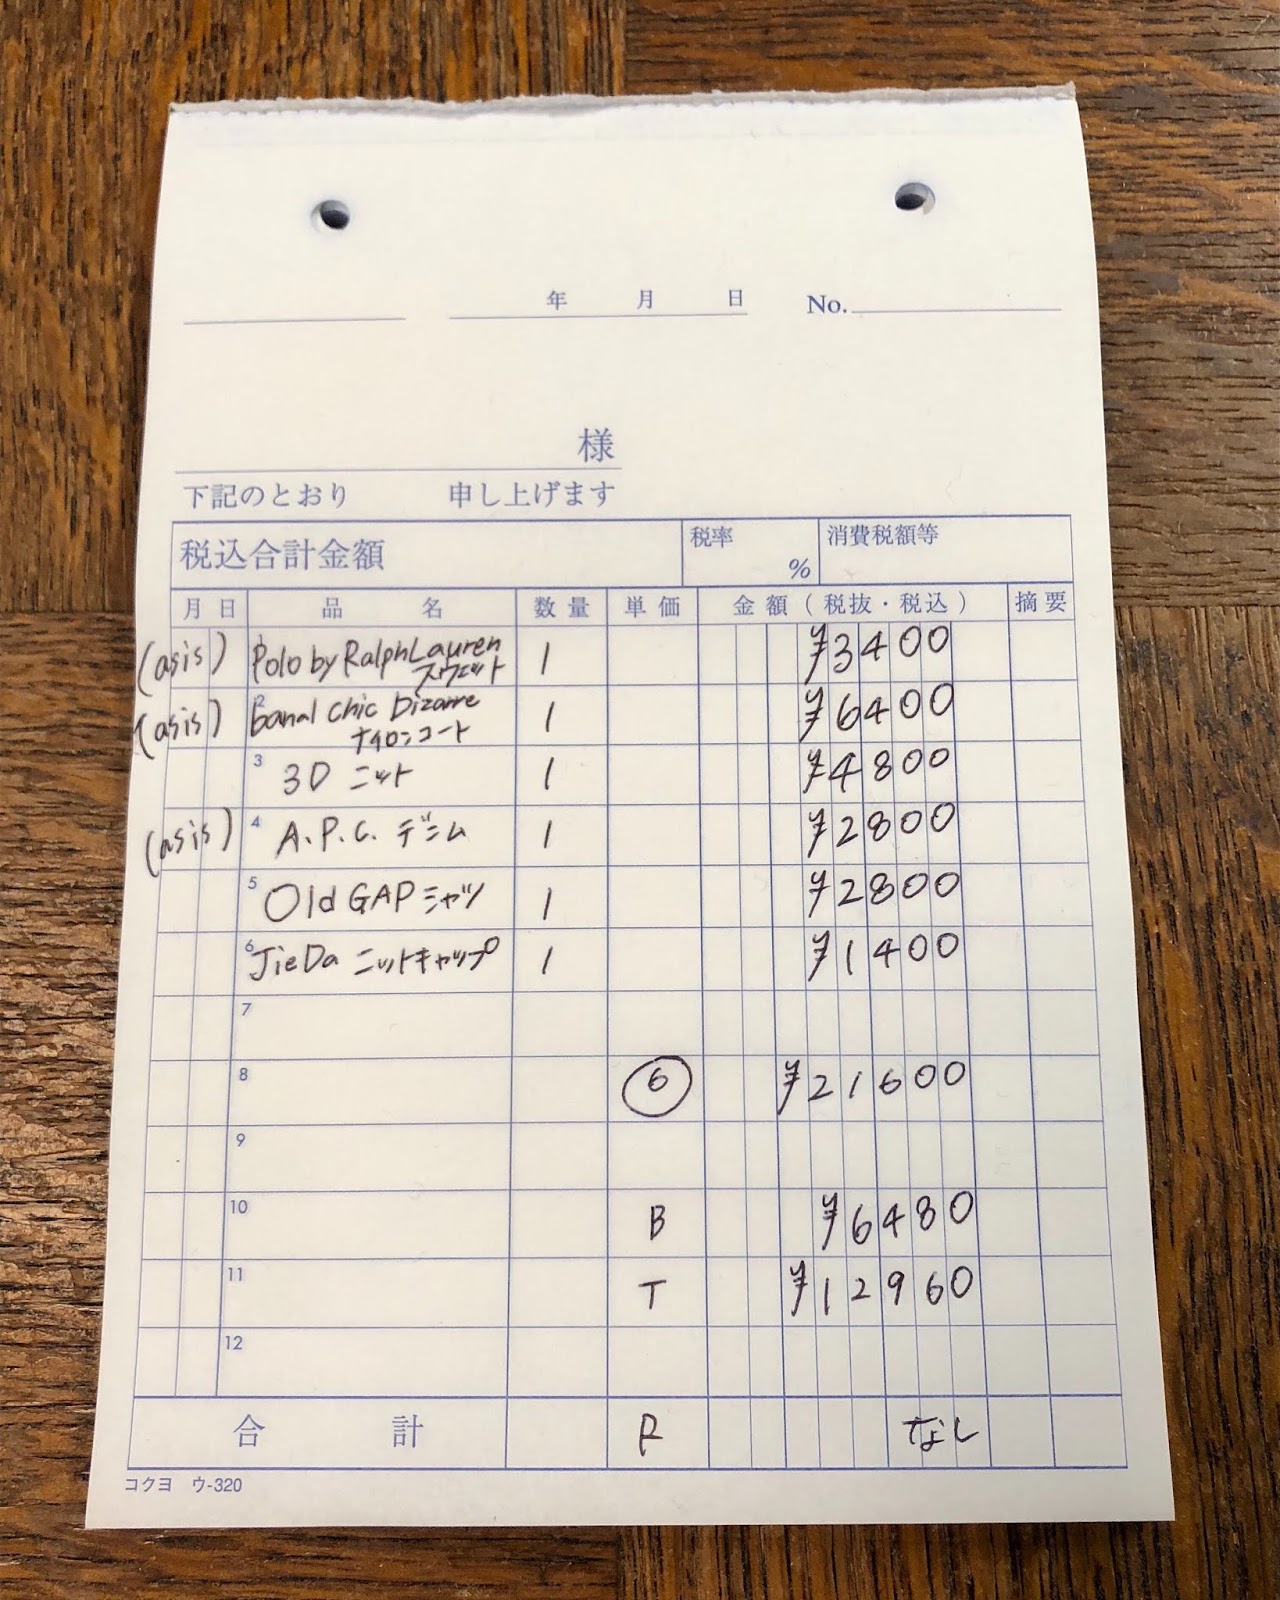 年 月 日 No.
様
下記のとおり 申し上げます
税込合計金額 税率 % 消費税額等
月 日 品 名 数量 単価 金額(税抜・税込) 摘要
(asis) Polo by Ralph Lauren 1 ¥3400
スウェット
(asis) 2 banal chic bizarre 1 ¥6400
ナイロンコート
3 3D ニット 1 ¥4800
(asis) 4 A.P.C. デニム 1 ¥2800
5 Old GAP シャツ 1 ¥2800
6 JieDa ニットキャップ 1 ¥1400
7
8 6 ¥21600
9
10 B ¥6480
11 T ¥12960
12
合 計 R なし
コクヨ ウ-320